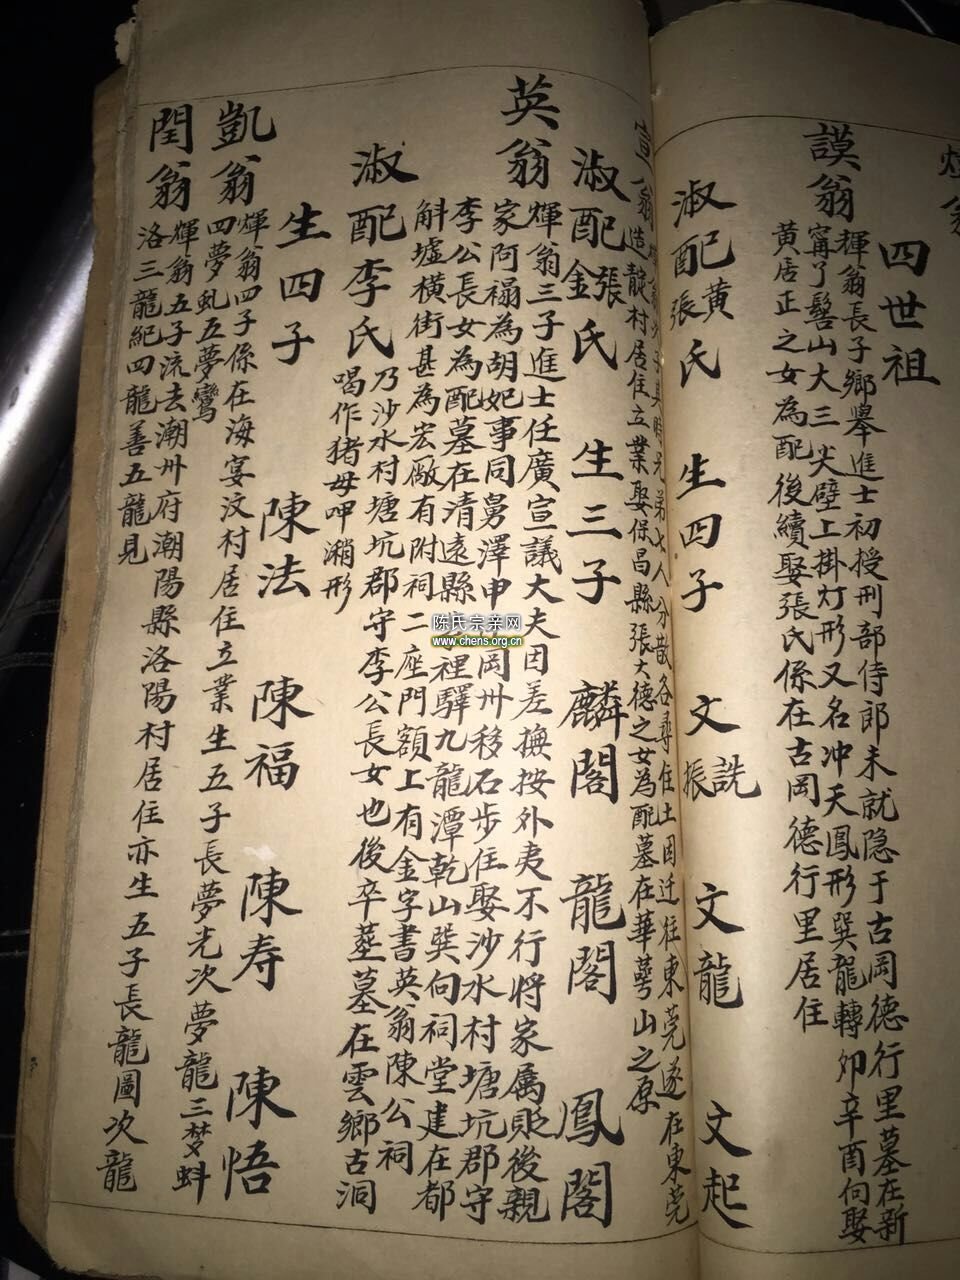 四世祖
謨翁
輝翁長子鄉舉進士初授刑部侍郎未就隐于古岡德行里墓在新
寗了髻山大三尖壁上掛灯形又名冲天鳳形巽龍轉卯辛酉向娶
黄居正之女為配後續娶張氏係在古岡德行里居住
淑配黄張氏 生四子 文詵 文振 文龍 文起
宣翁
輝翁次子其時兄弟七人分散各尋住土因迁往東莞遂在東莞
造靛村居住立業娶保昌縣張大德之女為配墓在華蕚山之原
淑配張金氏 生三子 麟閣 龍閣 鳳閣
英翁
輝翁三子進士任廣宣議大夫因差撫按外夷不行将家属貶後親
家阿禢為胡妃事同舅澤申岡州移石步住娶沙水村塘坑郡守
李公長女為配墓在清遠縣裡驛九龍潭乾山巽向祠堂建在都
斛墟橫街甚為宏厰有附祠二座門額上有金字書英翁陳公祠
淑配李氏
乃沙水村塘坑郡守李公長女也後卒塟墓在雲鄉古洞
喝作猪母呷潲形
生四子 陳法 陳福 陳寿 陳悟
凱翁
輝翁四子係在海宴汶村居住立業生五子長夢光次夢龍三梦蚪
四夢虬五夢鸞
閏翁
輝翁五子流去潮州府潮陽縣洛陽村居住亦生五子長龍圖次龍
洛三龍紀四龍善五龍見
陈氏宗亲网
www.chens.org.cn